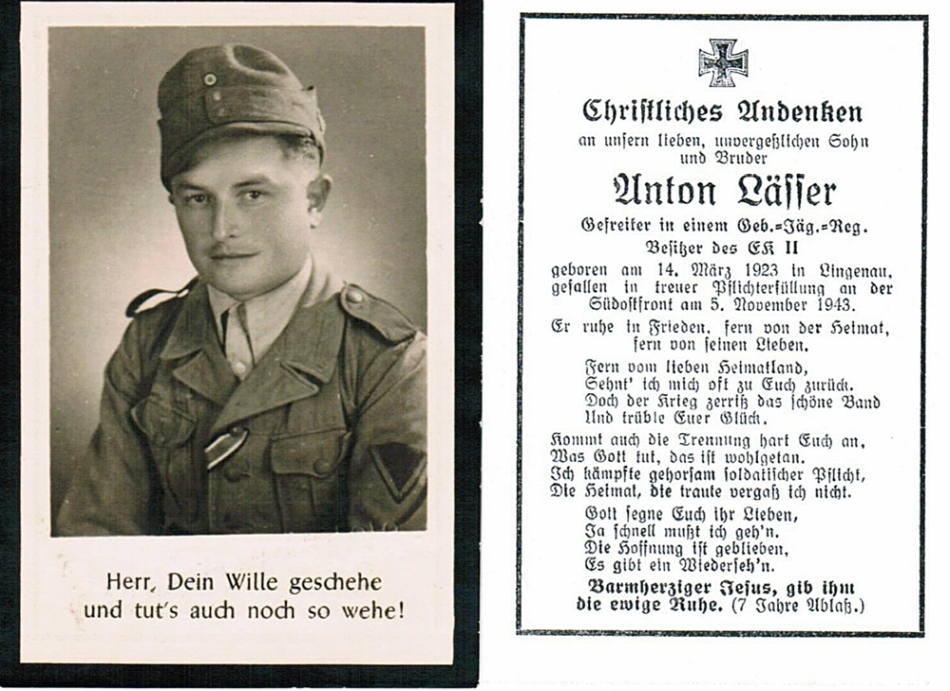 Herr, Dein Wille geschehe
und tut's auch noch so wehe!
Christliches Andenken
an unsern lieben, unvergeßlichen Sohn
und Bruder
Anton Lässer
Gefreiter in einem Geb.=Jäg.=Reg.
Besitzer des EK II
geboren am 14. März 1923 in Lingenau,
gefallen in treuer Pflichterfüllung an der
Südostfront am 5. November 1943.
Er ruhe in Frieden, fern von der Heimat,
fern von seinen Lieben.
Fern vom lieben Heimatland,
Sehnt' ich mich oft zu Euch zurück.
Doch der Krieg zerriß das schöne Band
Und trübte Euer Glück.
Kommt auch die Trennung hart Euch an,
Was Gott tut, das ist wohlgetan.
Ich kämpfte gehorsam soldatischer Pflicht,
Die Heimat, die traute vergaß ich nicht.
Gott segne Euch ihr Lieben,
Ja schnell mußt ich geh'n.
Die Hoffnung ist geblieben,
Es gibt ein Wiederseh'n.
Barmherziger Jesus, gib ihm
die ewige Ruhe. (7 Jahre Ablaß.)